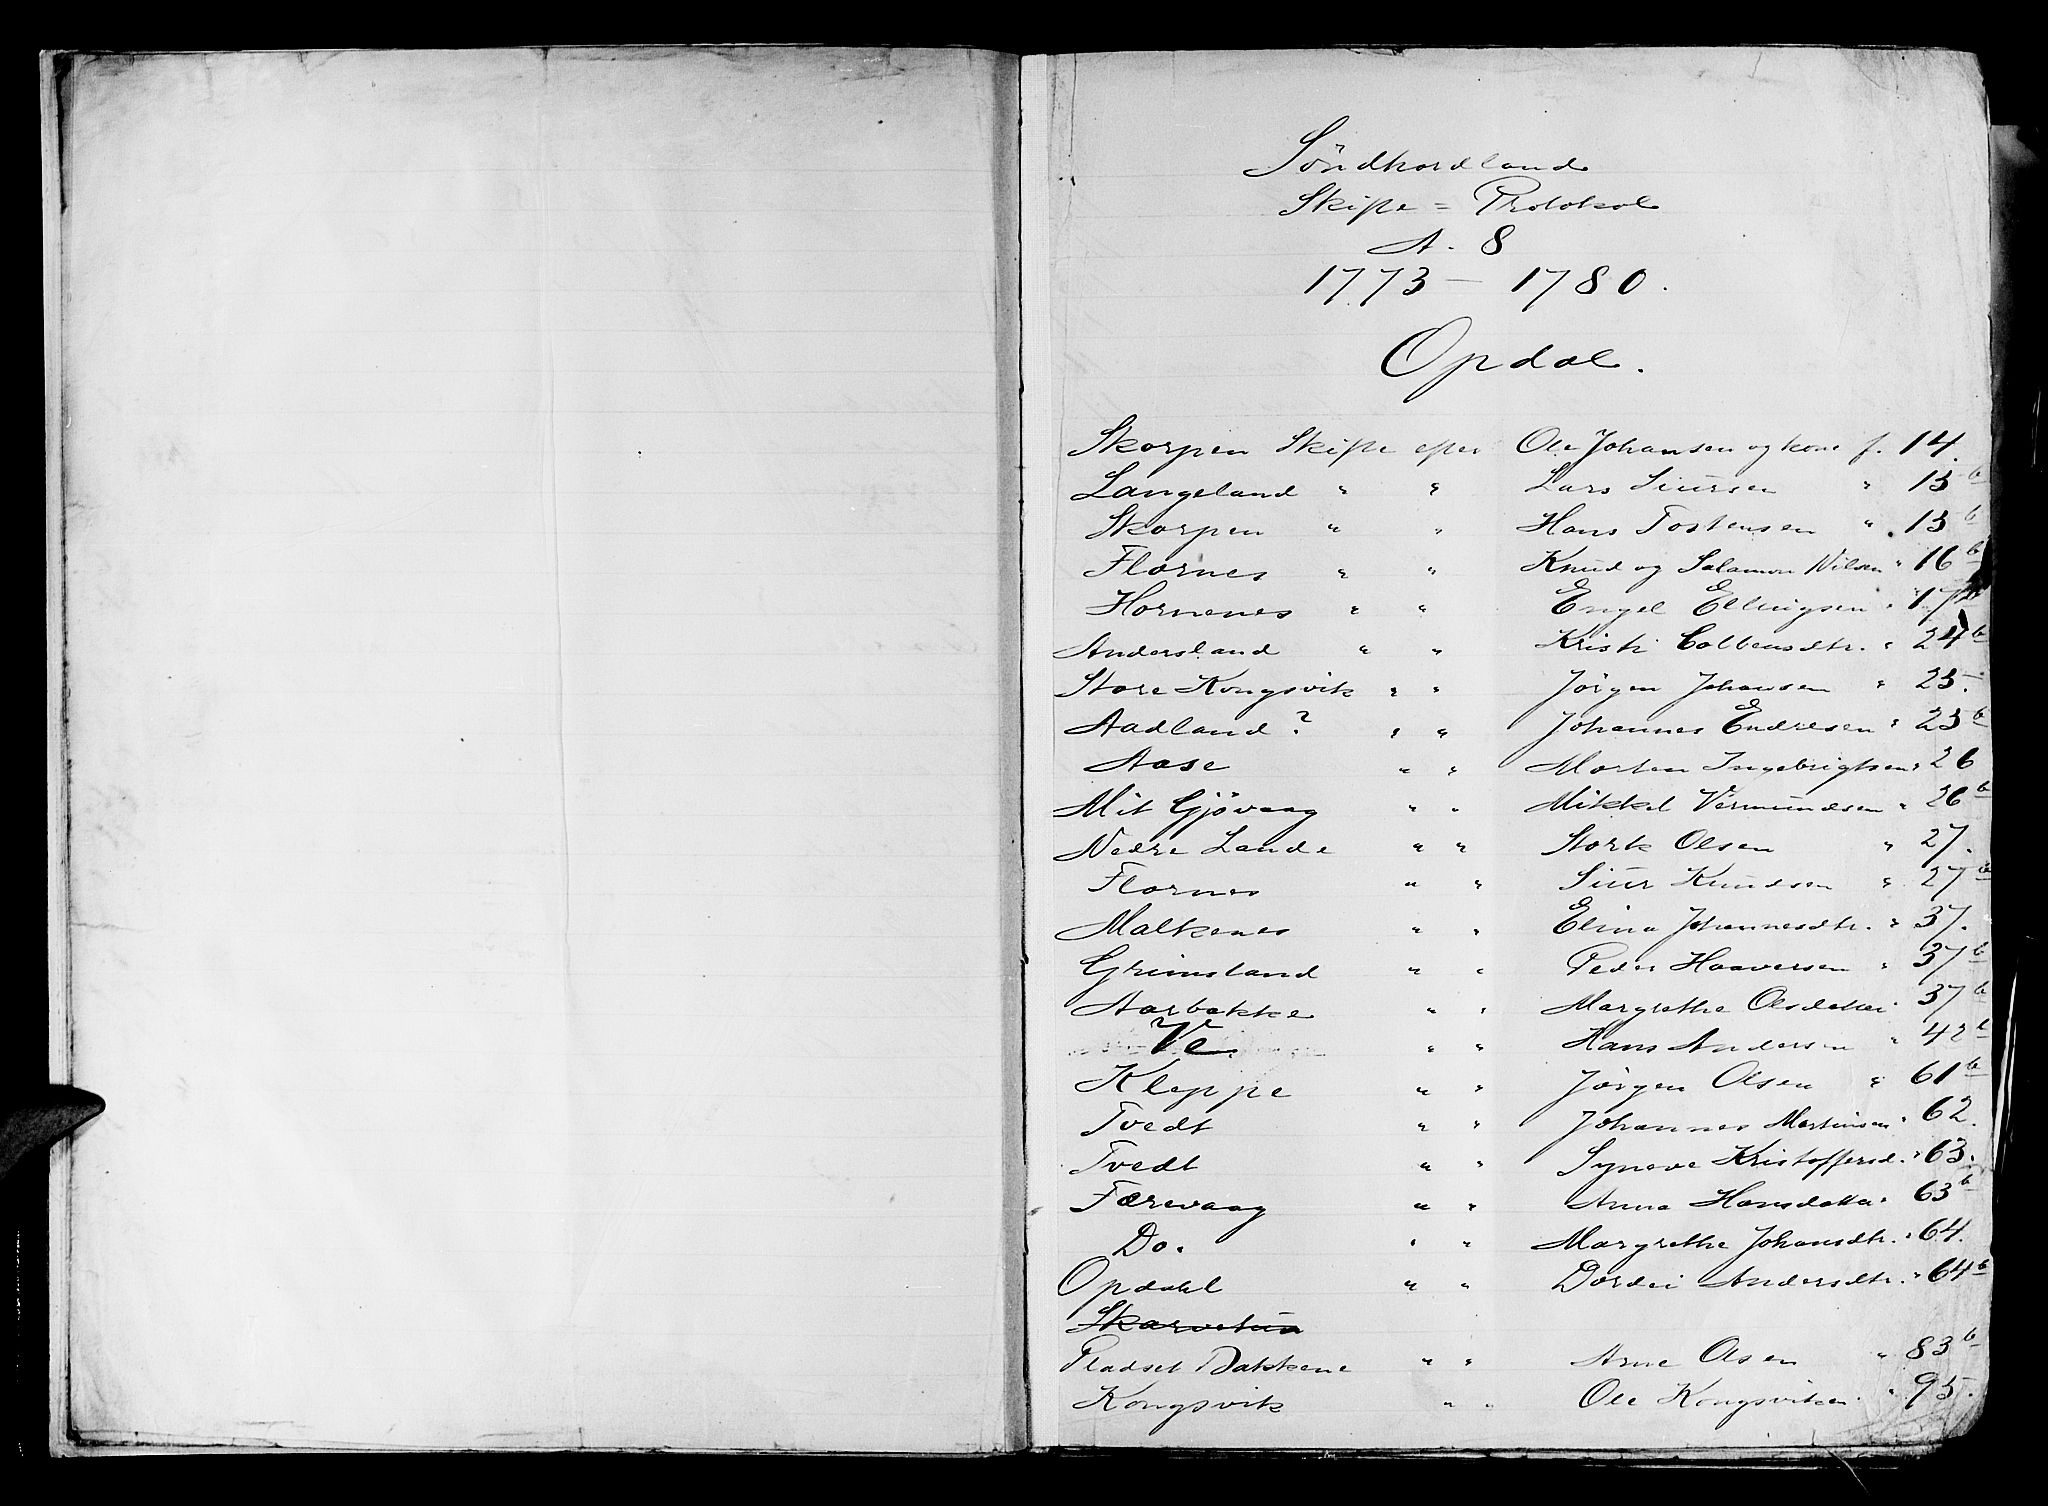 Söndhordland
Skifte = Protokol
A. 8
1773 - 1780.
Opdal.
Skorpen Skifte efter Ole Johansen og kone f. 14.
Langeland " " Lars Siursen " 15 b
Skorpen " " Hans Tostensen " 15 b
Flornes " " Knud og Salamon Nilsen " 16 b
Hornenes " " Engel Ellingsen " 17 b
Andersland " " Kristi Colbensdtr. " 24 b
Store Kongsvik " " Jörgen Johansen " 25.
Aadland? " " Johannes Endresen " 25 b
Aase " " Morten Ingebrigtsen " 26
Mit Gjövaag " " Mikkel Vermundsen " 26 b
Nedre Lande " " Stork Olsen " 27.
Flornes " " Siur Knudsen " 27 b
Malkenes " " Elina Johannesdtr. " 37.
Grimsland " " Peder Haaversen " 37 b
Aarbakke " " Margrethe Olsdatter 37 b
Ve " " Hans Andersen " 42 b
Kleppe " " Jörgen Olsen " 61 b
Tvedt " " Johannes Martinsen " 62.
Tvedt " " Syneve Kristoffersd. " 63.
Færevaag " " Anna Hansdatter 63 b
Do. " " Margrethe Johansdtr. " 64.
Opdahl " " Dordei Andersdtr. " 64 b
Skarvetun
Pladset Bakkene " " Arne Olsen " 83 b
Kongsvik " " Ole Kongsviken " 95.